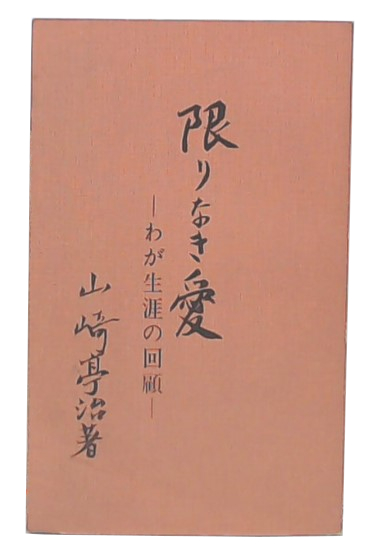 限りなき愛
―わが生涯の回顧―
山崎亭治著